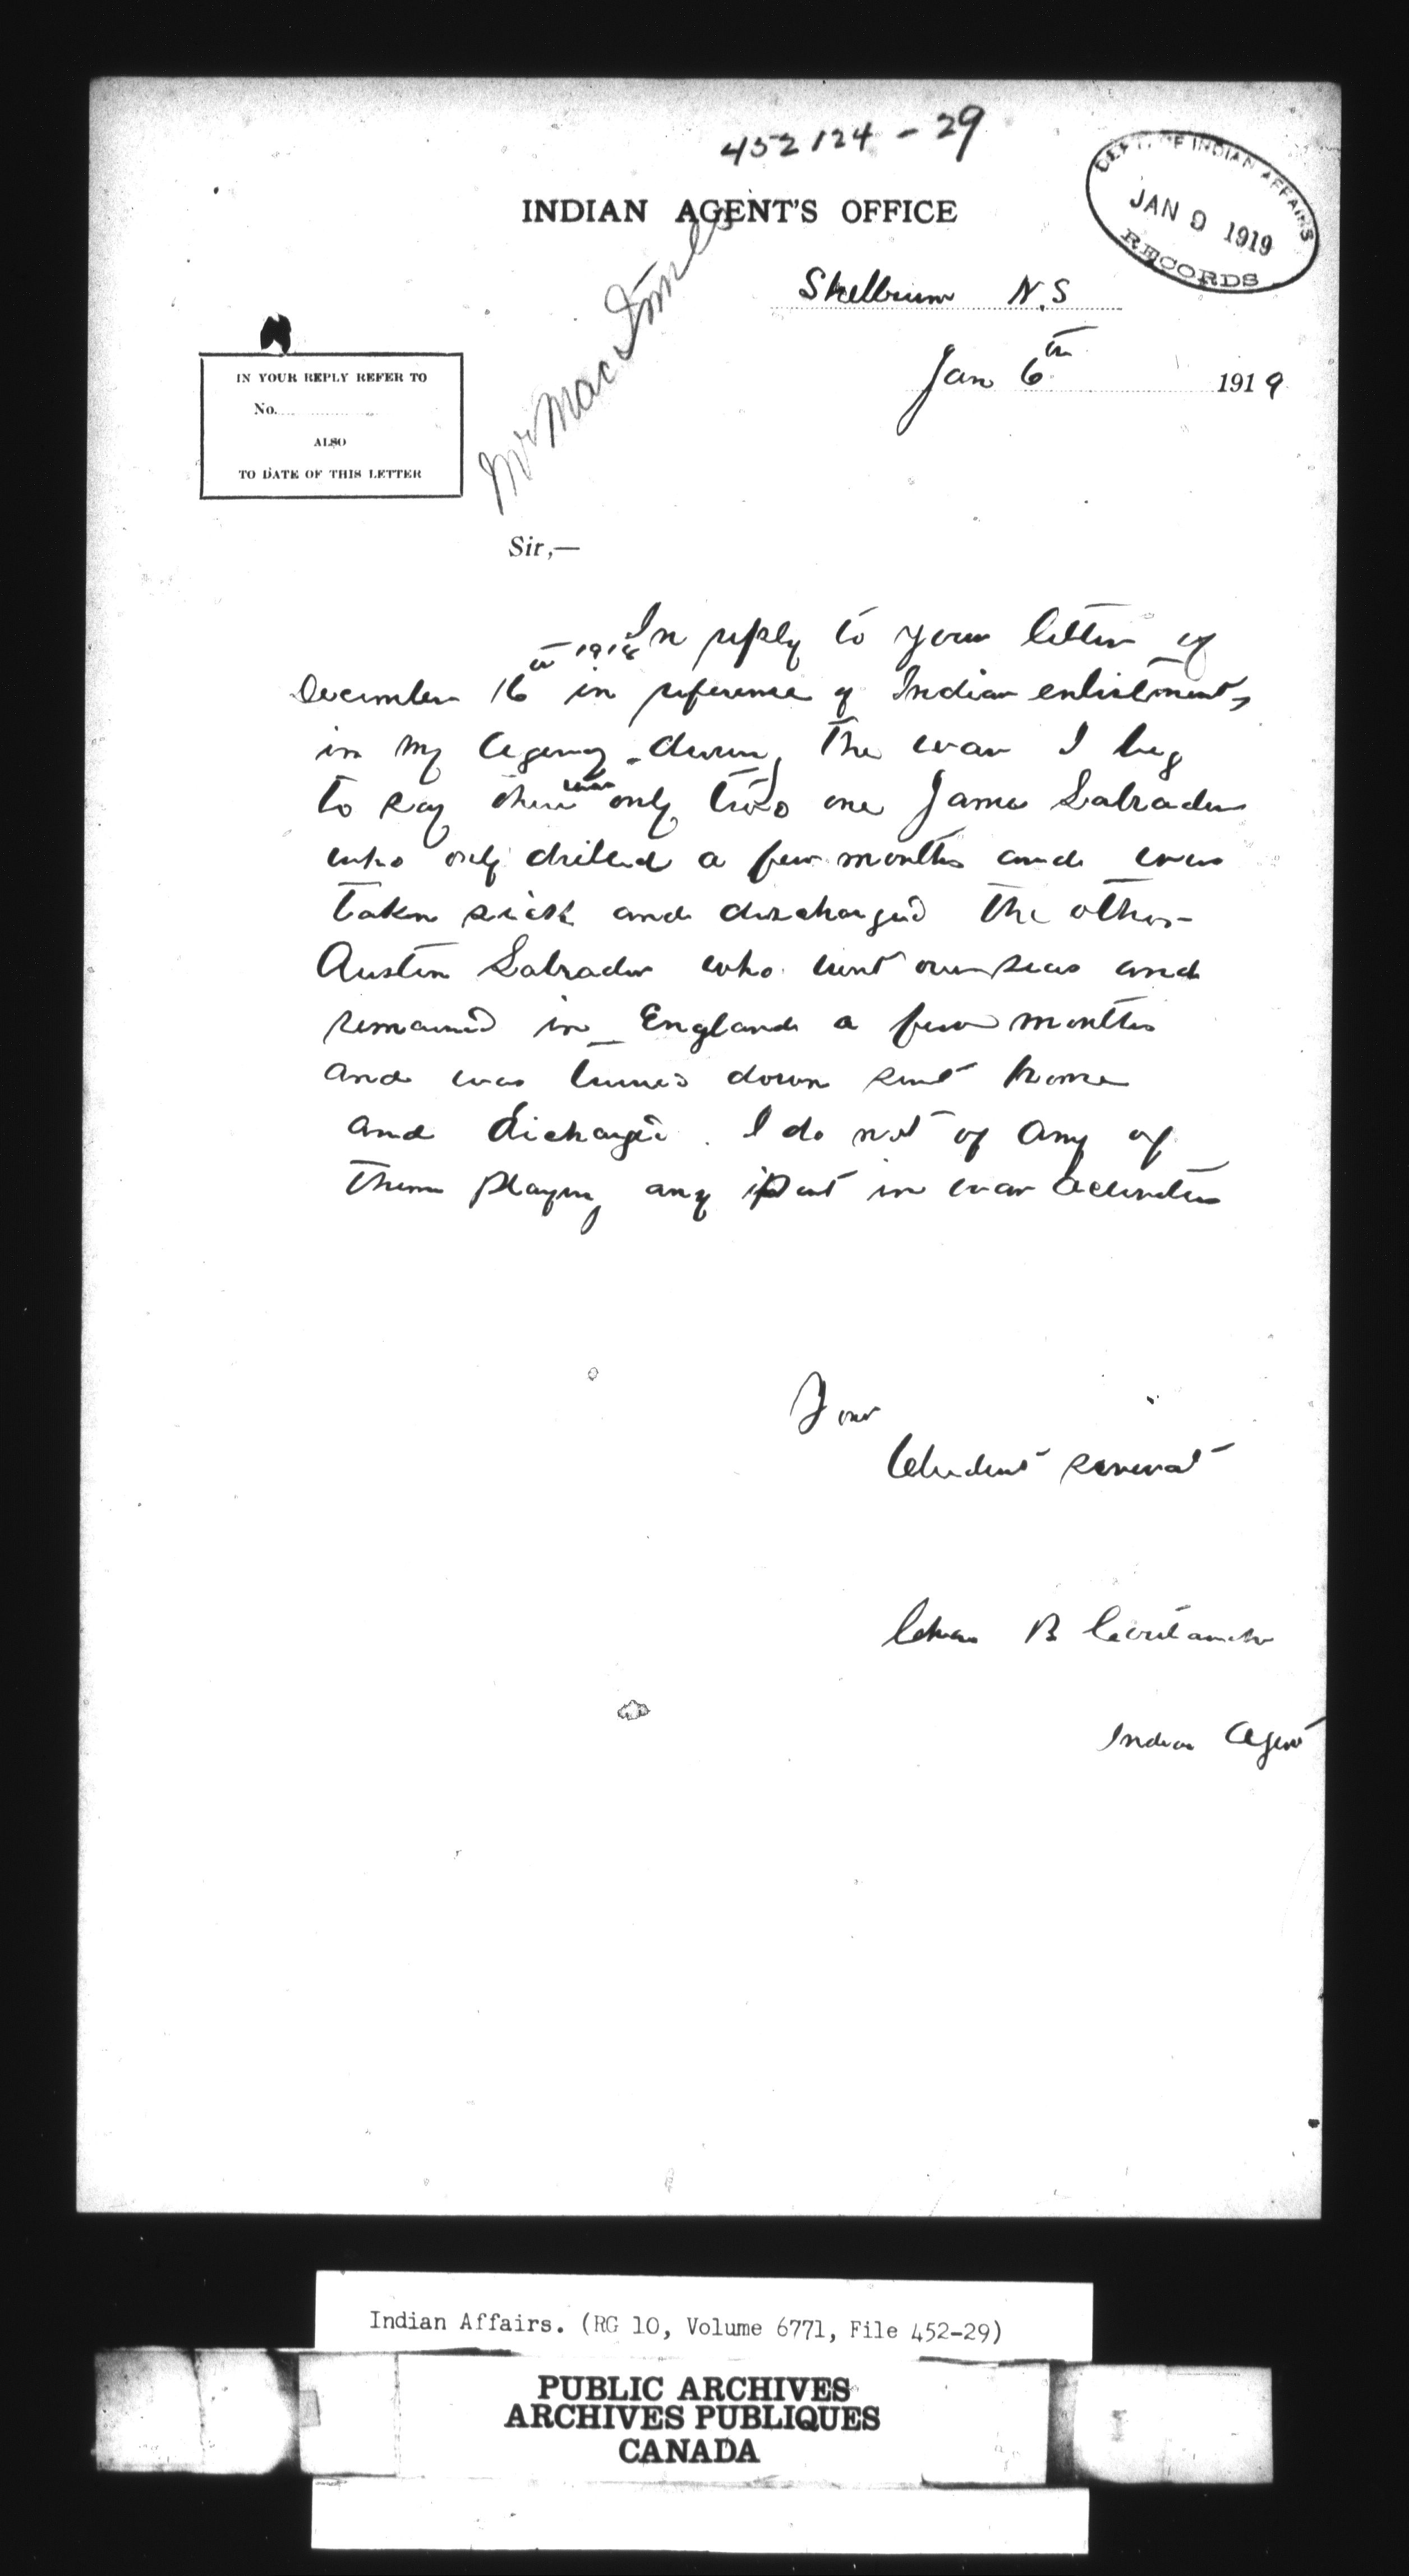 452124-29
INDIAN AGENT'S OFFICE
DEPT. OF INDIAN AFFAIRS
JAN 9 1919
RECORDS
Shelburne N.S
Jan 6th 1919
Mr Mac Innes
IN YOUR REPLY REFER TO
No.
ALSO
TO DATE OF THIS LETTER
Sir,—
In reply to your letter of
December 16th 1918 in reference of Indian enlistments
in my Agency during the war I beg
to say there was only two one James Labrador
who only drilled a few months and was
taken sick and discharged the other
Austin Labrador who went overseas and
remained in England a few months
and was turned down sent home
and dicharged. I do not of any of
them playing any part in war activities
Your
Obedient servant
Chas B
Indian Agent
Indian Affairs. (RG 10, Volume 6771, File 452-29)
PUBLIC ARCHIVES
ARCHIVES PUBLIQUES
CANADA